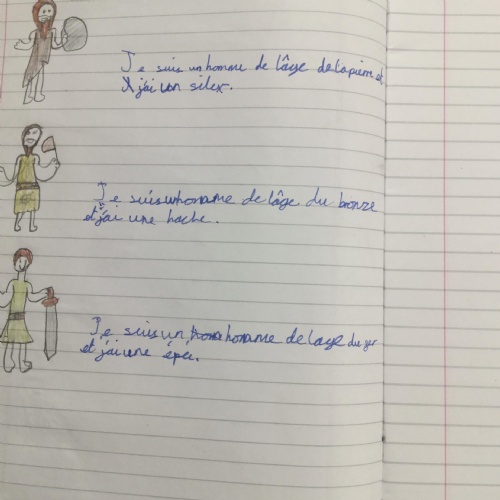 Je suis un homme de l'âge de la pierre et
j'ai un silex.
Je suis un homme de l'âge du bronze
et j'ai une hache.
Je suis un homme de l'age du fer
et j'ai une épée.